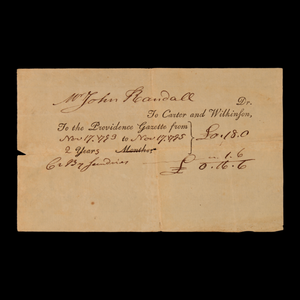 Mr John Randall Dr.
To Carter and Wilkinson,
To the Providence Gazette from
Nov 17, 1783 to Nov 17, 1785 } £0.18.0
2 Years Months
Cr By Sundries 1.6
£ 0.16.6